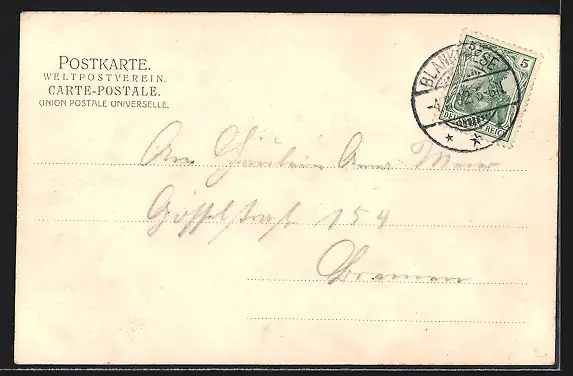 POSTKARTE.
WELTPOSTVEREIN.
CARTE-POSTALE.
UNION POSTALE UNIVERSELLE.
5
BLANKENESE
REICH
An Fräulein Anna Meier
154
Bremen